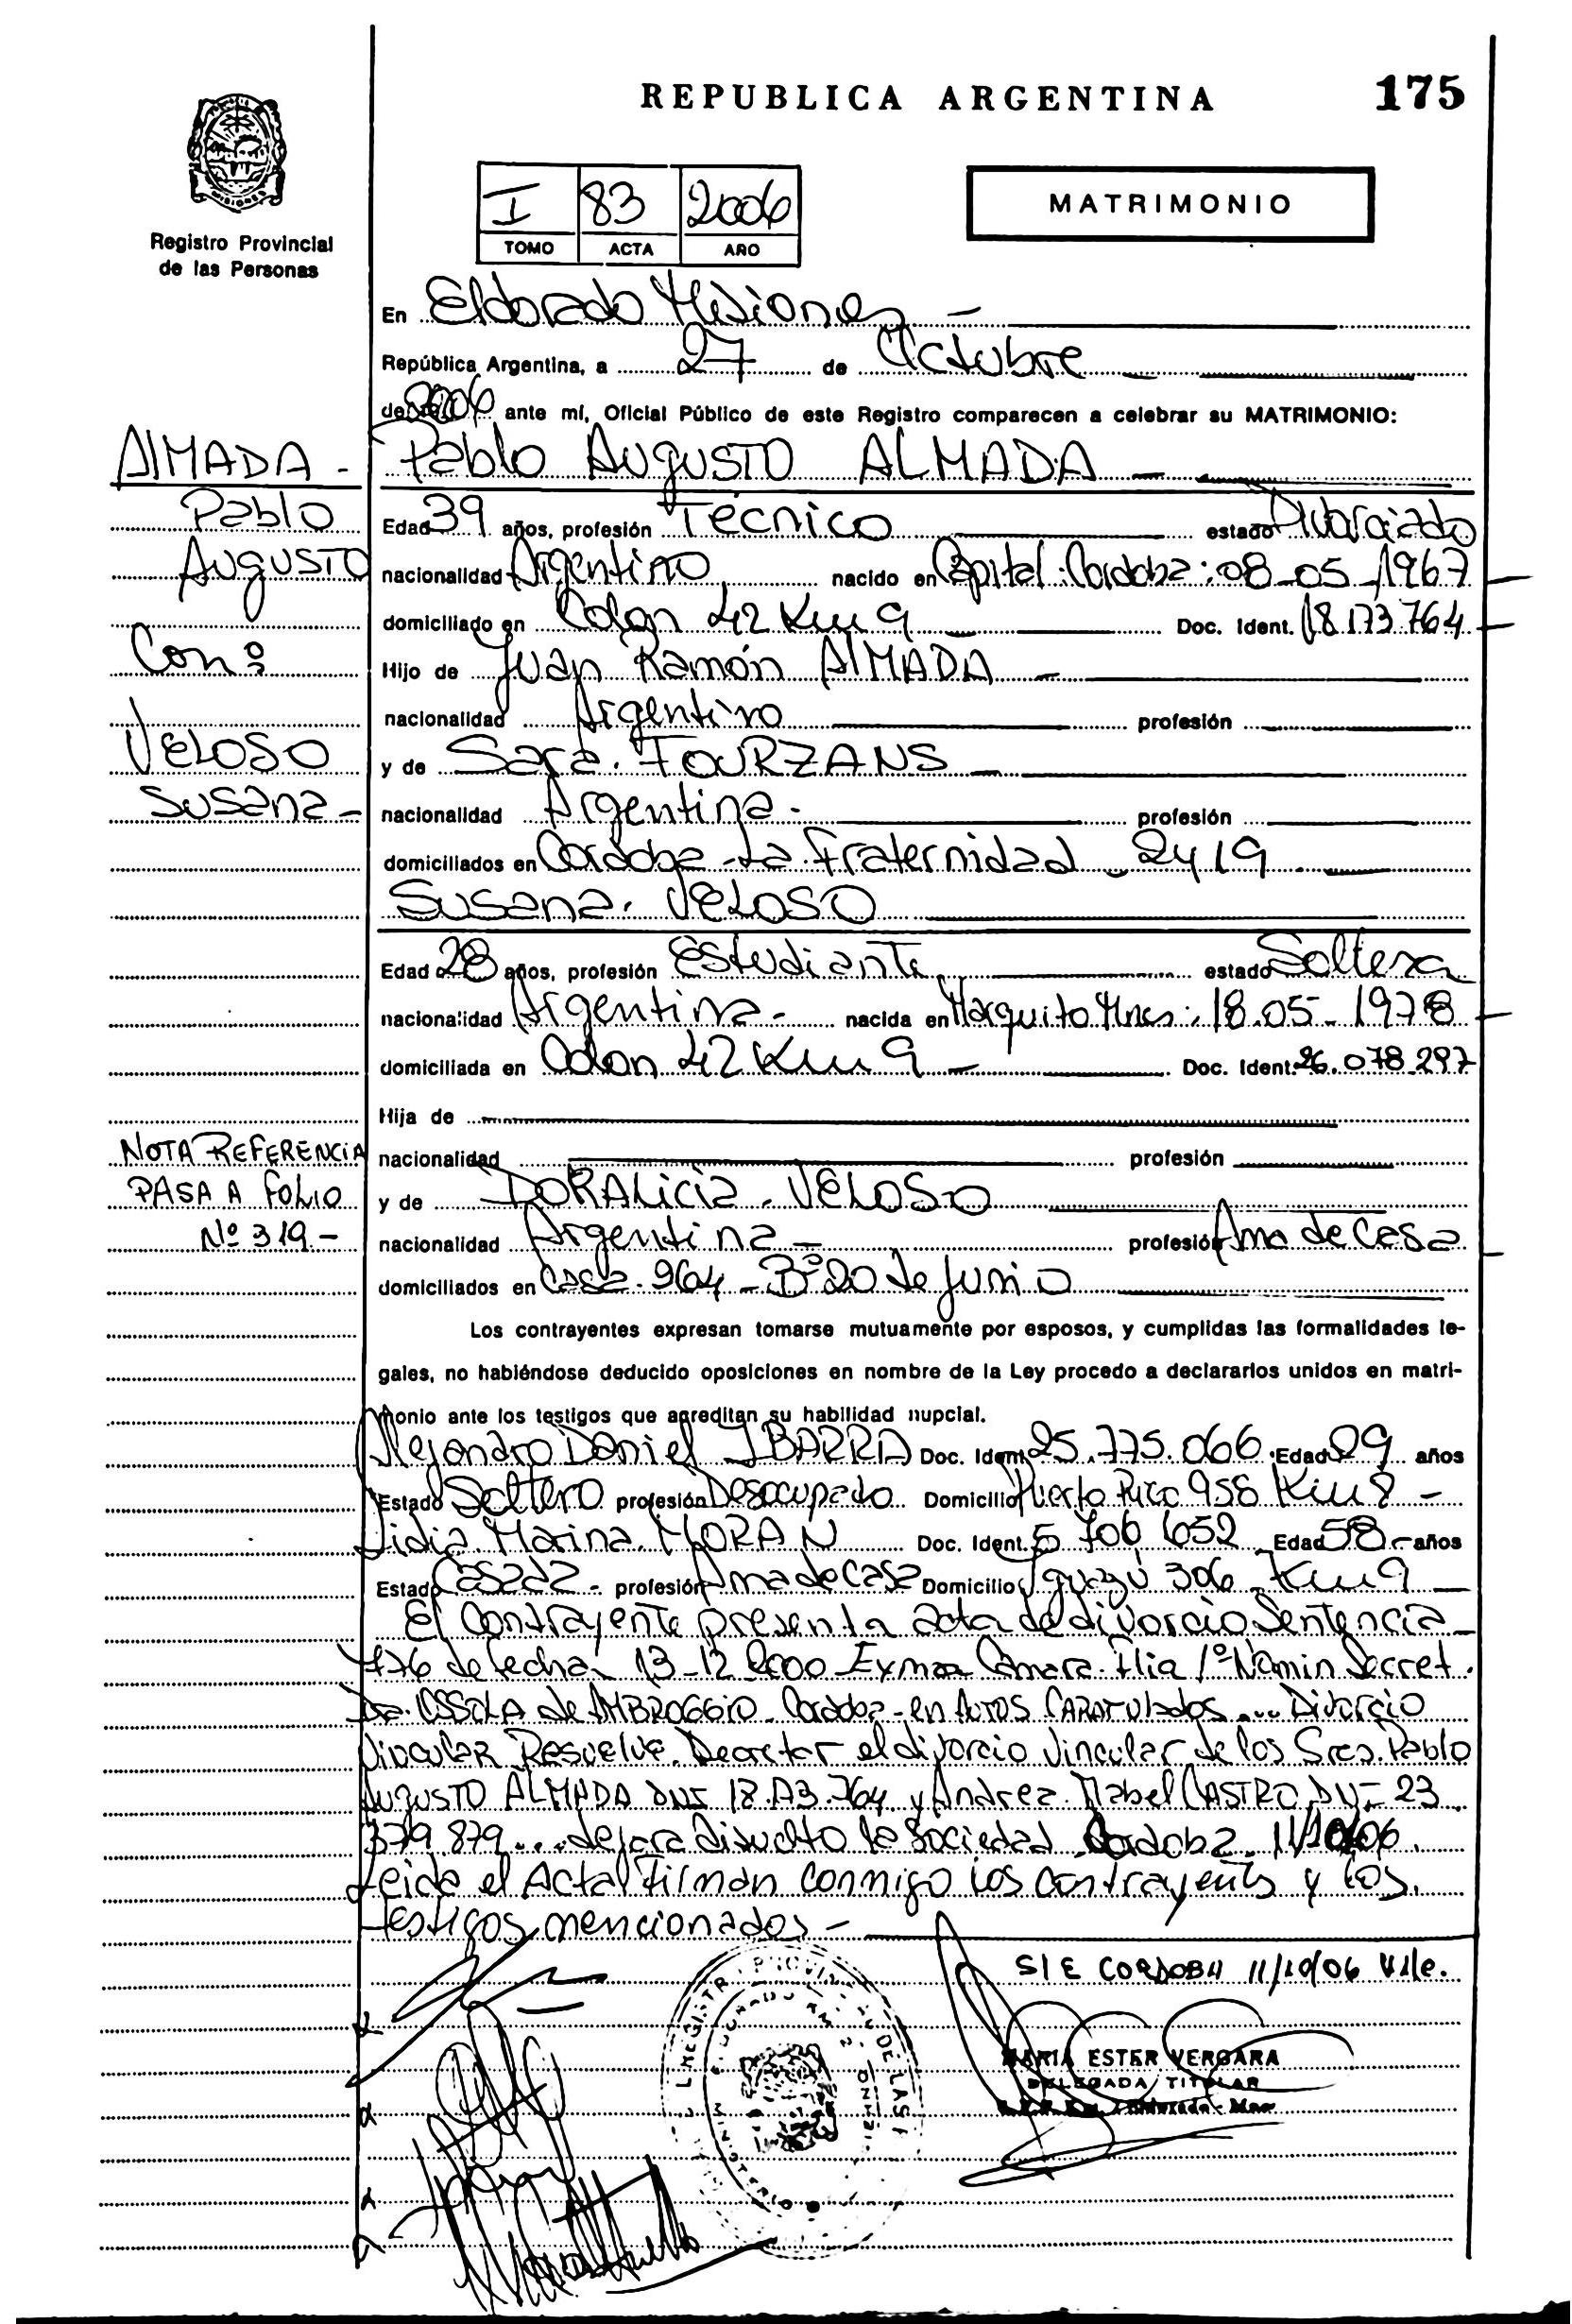 REPUBLICA ARGENTINA 175
MISIONES
Registro Provincial
de las Personas
I 83 2006
TOMO ACTA AÑO
MATRIMONIO
En Eldorado Misiones -
República Argentina, a 27 de Octubre
de 2006 ante mí, Oficial Público de este Registro comparecen a celebrar su MATRIMONIO:
ALMADA -
Pablo
Augusto
Con:
VELOSO
Susana -
NOTA REFERENCIA
PASA A FOLIO
Nº 319.-
Pablo Augusto ALMADA -
Edad 39 años, profesión Técnico estado Divorciado
nacionalidad Argentino nacido en Capital: Cordoba: 08-05-1967
domiciliado en Colon 42 Km 9 - Doc. Ident. 18.173.764
Hijo de Juan Ramón ALMADA -
nacionalidad Argentino profesión
y de Sara. TOURZANS -
nacionalidad Argentina - profesión
domiciliados en Cordoba - La Fraternidad - 2419
Susana. VELOSO
Edad 28 años, profesión Estudiante estado Soltera
nacionalidad Argentina - nacida en Mnes: 18.05-1978
domiciliada en Colon 42 Km 9 - Doc. Ident. 26.078.297
Hija de
nacionalidad profesión
y de DORALicia. VELOSO
nacionalidad Argentina - profesión Ama de Casa
domiciliados en Casa. 964 - Bº 20 de Junio
Los contrayentes expresan tomarse mutuamente por esposos, y cumplidas las formalidades le-
gales, no habiéndose deducido oposiciones en nombre de la Ley procedo a declararlos unidos en matri-
monio ante los testigos que acreditan su habilidad nupcial.
Alejandro Daniel IBARRA Doc. Ident. 25.775.066 Edad 29 años
Estado Soltero profesión Desocupado Domicilio Puerto Rico 958 Km 8 -
Lidia. Marina. MORAN Doc. Ident. 5 706 652 Edad 58 - años
Estado Casada - profesión Ama de Casa Domicilio Iguazú 306 - Km 9 -
El Contrayente presenta acta de divorcio Sentencia
de fecha 13-12 2000 Exma Cámara. Flia 1º Nomin Secret.
OSSOLA de AMBROGGIO - Cordoba - en Autos Caratulados ... Divorcio
Vincular Resuelve. Decretar el divorcio Vincular de los Sres. Pablo
Augusto ALMADA DNI 18.173.764 y Andrea. Mabel CASTRO DNI 23
379.879 ... dejara disuelto la sociedad. Cordoba 11/10/06.
Leida el Acta Firman conmigo los contrayentes y los
testigos mencionados -
S/E CORDOBA 11/10/06 Vale.
MARIA ESTER VERGARA
DELEGADA TITULAR